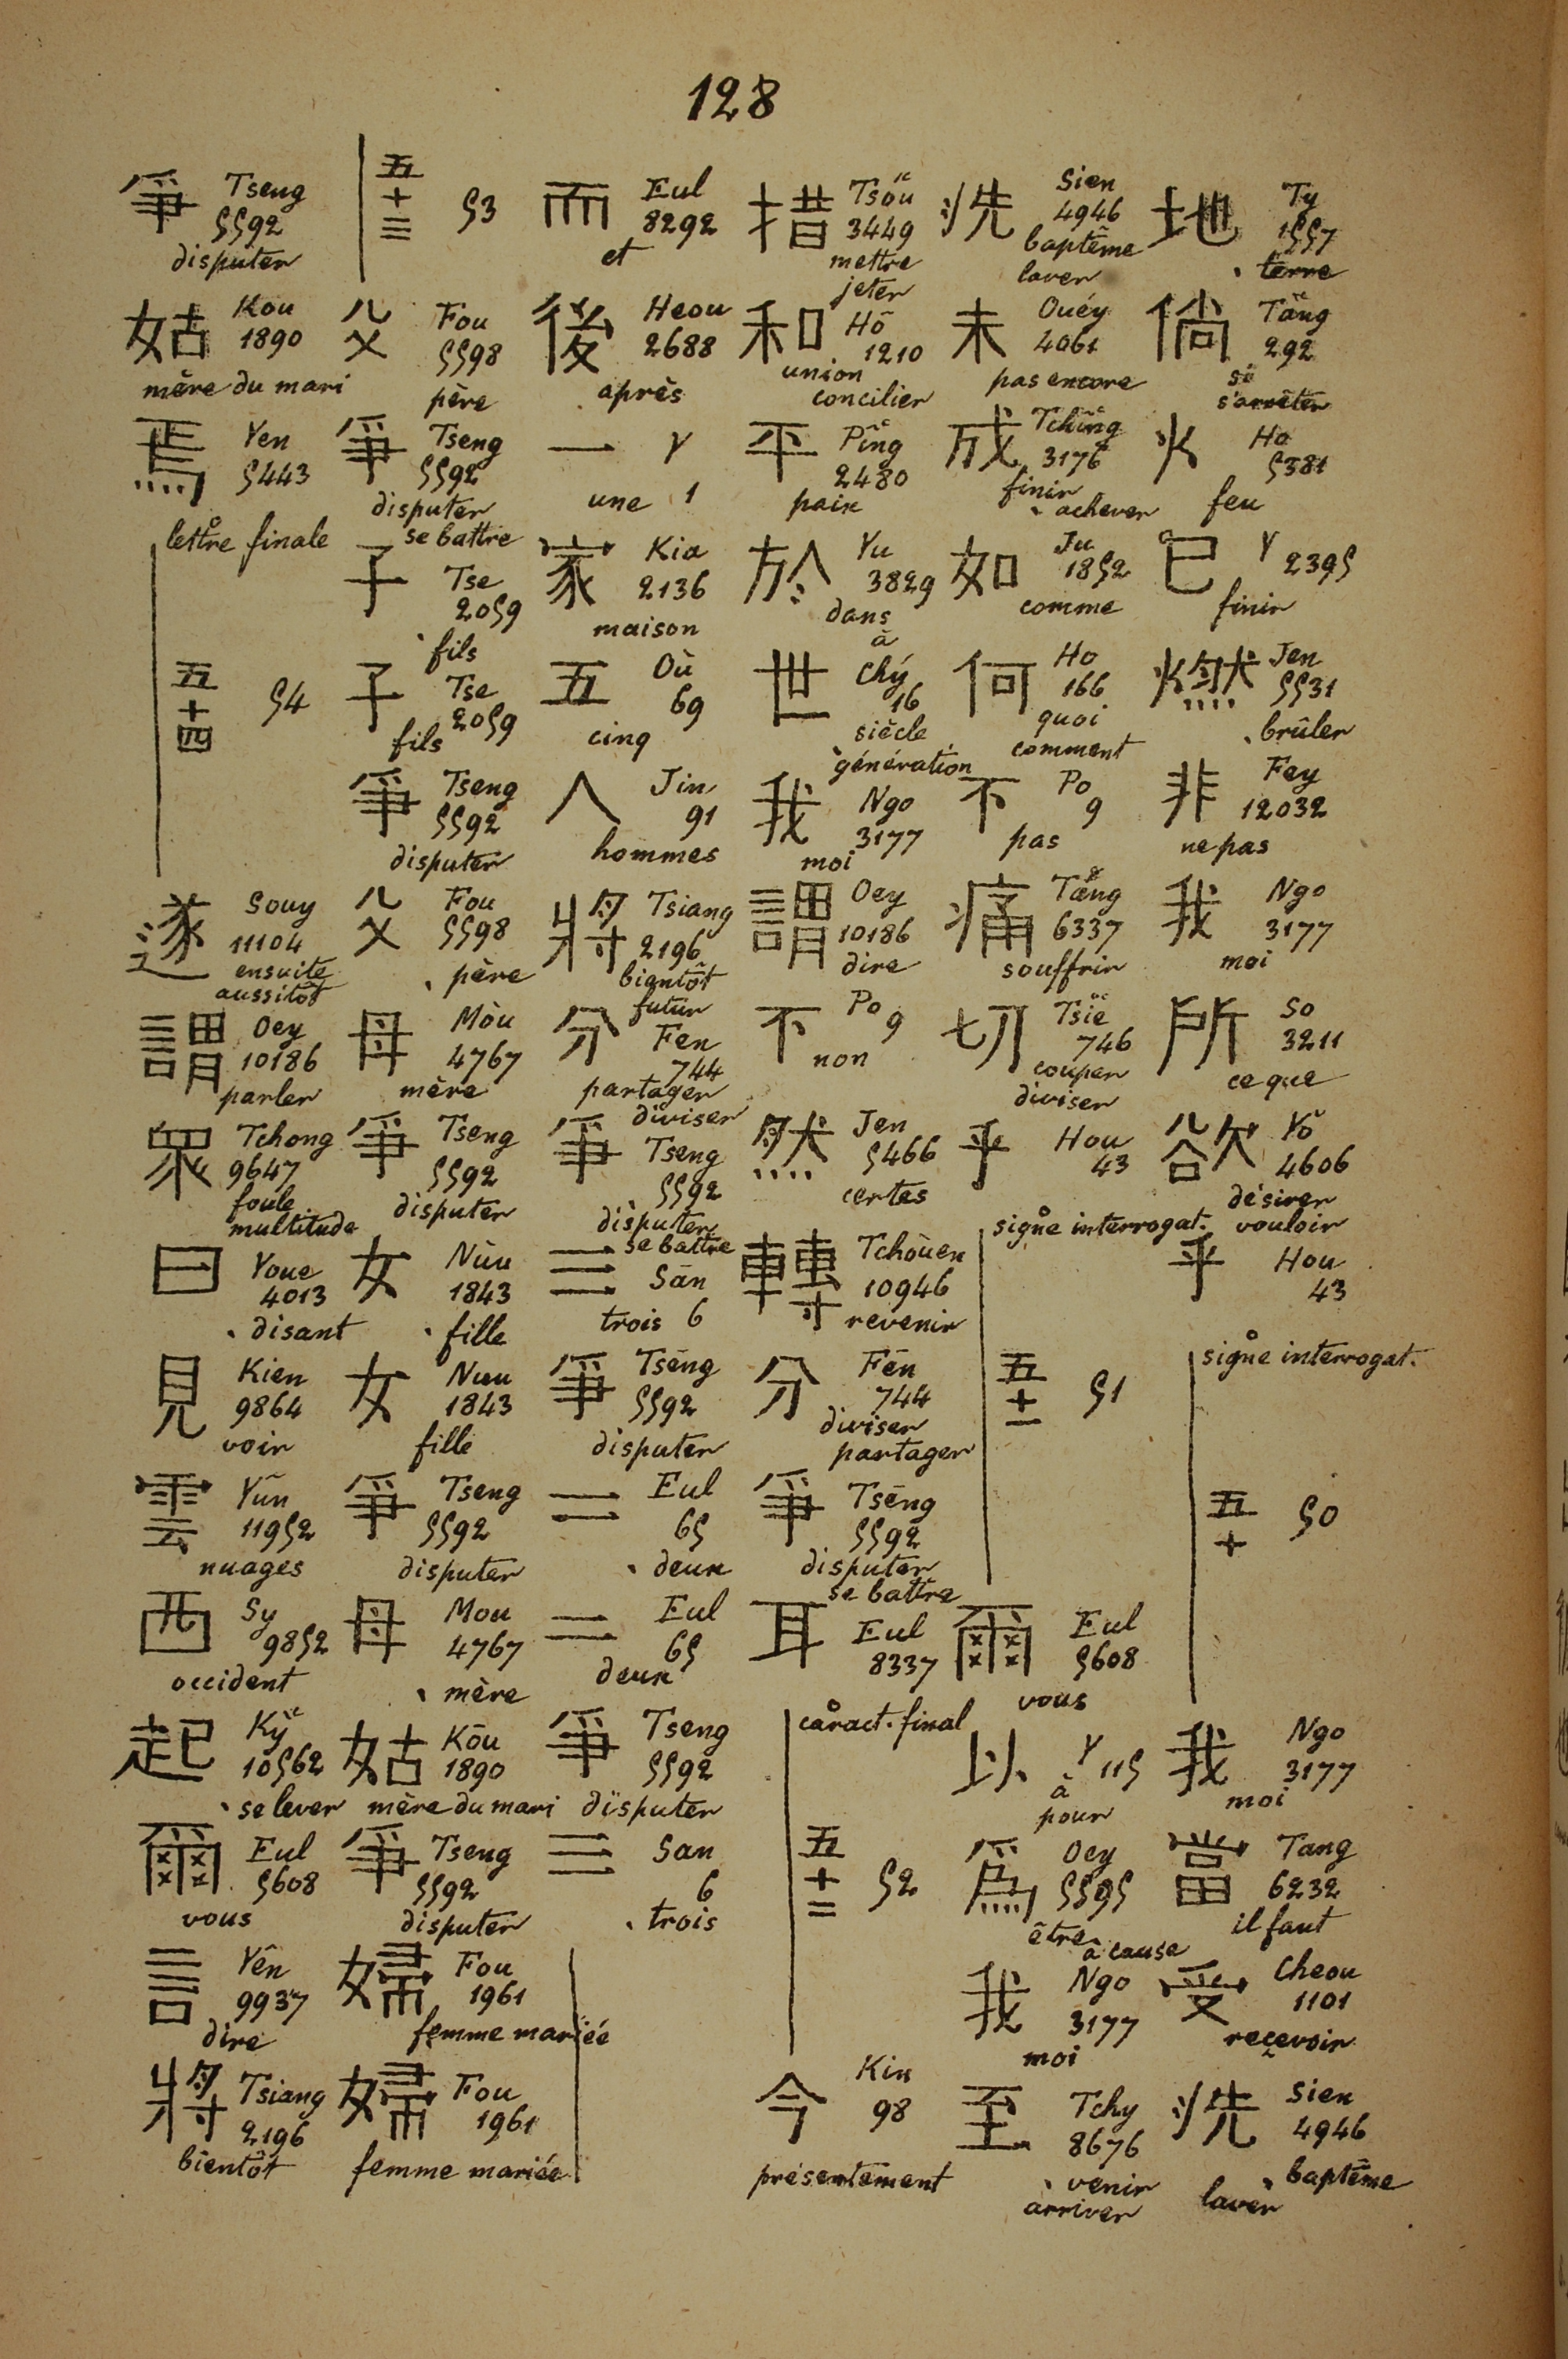 128
地 Ty 1557 terre
倘 Tăng 292 si s'arrêter
火 Ho 5381 feu
已 Y 2395 finir
燃 Jen 5531 brûler
非 Fey 12032 ne pas
我 Ngo 3177 moi
所 So 3211 ce que
欲 Yŏ 4606 désirer vouloir
乎 Hou 43 signe interrogat.
五十 50
我 Ngo 3177 moi
當 Tang 6232 il faut
受 Cheou 1101 recevoir
洗 Sien 4946 baptême laver
洗 Sien 4946 baptême laver
未 Ouéy 4061 pas encore
成 Tchîng 3176 finir achever
如 Ju 1852 comme
何 Ho 166 quoi comment
不 Po 9 pas
痛 Tăng 6337 souffrir
切 Tsiĕ 746 couper diviser
乎 Hou 43 signe interrogat.
五十一 51
爾 Eul 5608 vous
以 Y 115 à pour
為 Oey 5595 être à cause
我 Ngo 3177 moi
至 Tchy 8676 venir arriver
措 Tsŏu 3449 mettre jeter
和 Hô 1210 union concilier
平 Pîng 2480 paix
於 Yu 3829 dans à
世 Chý 16 siècle génération
我 Ngo 3177 moi
謂 Oey 10186 dire
不 Po 9 non
然 Jen 5466 certes
轉 Tchòuen 10946 revenir
分 Fēn 744 diviser partager
爭 Tsēng 5592 disputer se battre
耳 Eul 8337 caract. final
五十二 52
今 Kin 98 présentement
而 Eul 8292 et
後 Heou 2688 après
一 Y une 1
家 Kia 2136 maison
五 Où 69 cinq
人 Jin 91 hommes
將 Tsiang 2196 bientôt futur
分 Fen 744 partager diviser
爭 Tseng 5592 disputer se battre
三 Sān trois 6
爭 Tsēng 5592 disputer
二 Eul 65 deux
二 Eul 65 deux
爭 Tseng 5592 disputer
三 San 6 trois
五十三 53
父 Fou 5598 père
爭 Tseng 5592 disputer se battre
子 Tse 2059 fils
子 Tse 2059 fils
爭 Tseng 5592 disputer
父 Fou 5598 père
母 Mòu 4767 mère
爭 Tseng 5592 disputer
女 Nùu 1843 fille
女 Nuu 1843 fille
爭 Tseng 5592 disputer
母 Mou 4767 mère
姑 Kōu 1890 mère du mari
爭 Tseng 5592 disputer
婦 Fou 1961 femme mariée
婦 Fou 1961 femme mariée
爭 Tseng 5592 disputer
姑 Kou 1890 mère du mari
焉 Yen 5443 lettre finale
五十四 54
遂 Souy 11104 ensuite aussitôt
謂 Oey 10186 parler
眾 Tchong 9647 foule multitude
曰 Youe 4013 disant
見 Kien 9864 voir
雲 Yûn 11952 nuages
西 Sy 9852 occident
起 Kỳ 10562 se lever
爾 Eul 5608 vous
言 Yên 9937 dire
將 Tsiang 2196 bientôt